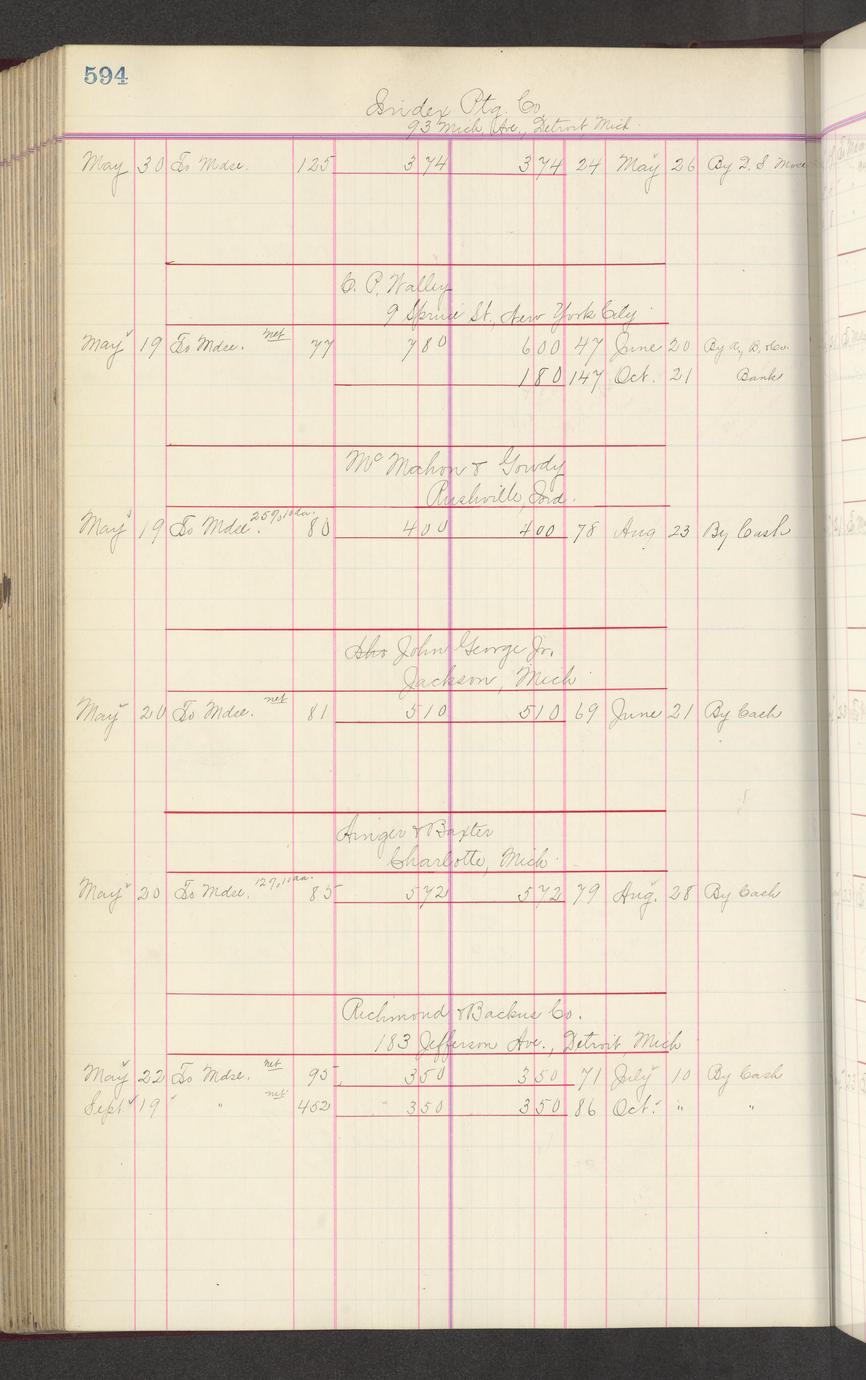 594
Index Ptg. Co
93 Mich. Ave., Detroit Mich.
May 30 To Mdse. 125 3 74 3 74 24 May 26 By D. S
C. P. Walley
9 Spruce St., New York City
May 19 To Mdse. net 77 7 80 6 00 47 June 20 By
1 80 147 Oct. 21 Bank
McMahon & Gowdy
Rushville, Ind.
May 19 To Mdse. 25% 10 da. 80 4 00 4 00 78 Aug 23 By Cash
John George Jr.
Jackson, Mich.
May 20 To Mdse. net 81 5 10 5 10 69 June 21 By Cash
& Baxter
Charlotte, Mich.
May 20 To Mdse. 12% 10 da. 85 5 72 5 72 79 Aug. 28 By Cash
Richmond & Backus Co.
183 Jefferson Ave., Detroit, Mich
May 22 To Mdse. net 95 3 50 3 50 71 July 10 By Cash
Sept 19 " " net 452 3 50 3 50 86 Oct. " "